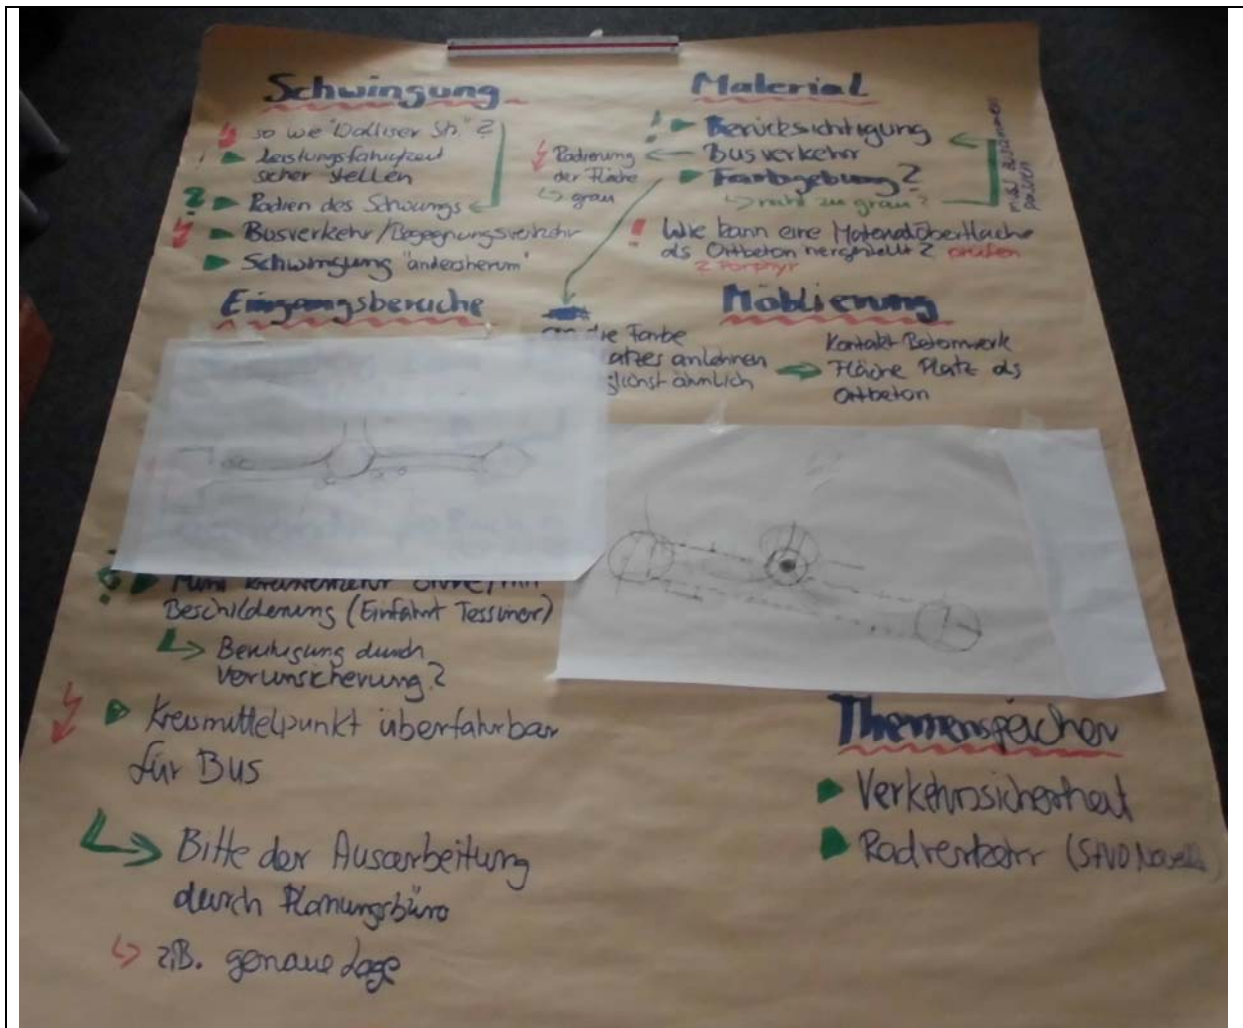 Schwingung
so wie "Dolliser Str." ?
! Leistungsfähigkeit
sicher stellen
? Radien des Schwungs
Busverkehr/Begegnungsverkehr
Schwingung "andersherum"
Material
! Berücksichtigung
Busverkehr
Farbgebung?
nicht zu grau?
Radierung
der Fläche
grau
passen
! Wie kann eine Materialoberfläche
als Ortbeton hergestellt? prüfen
? Porphyr
Eingangsbereiche
die Farbe
atzes anlehnen
glichst ähnlich
Möblierung
Kontakt Betonwerk
Fläche Platz als
Ortbeton
Mini Kreisverkehr ohne/mit
Beschilderung (Einfahrt Tessiner)
Beruhigung durch
Verunsicherung?
Kreismittelpunkt überfahrbar
für Bus
Bitte der Ausarbeitung
durch Planungsbüro
z.B. genaue Lage
Themenspeicher
Verkehrssicherheit
Radverkehr (StVO Novelle)